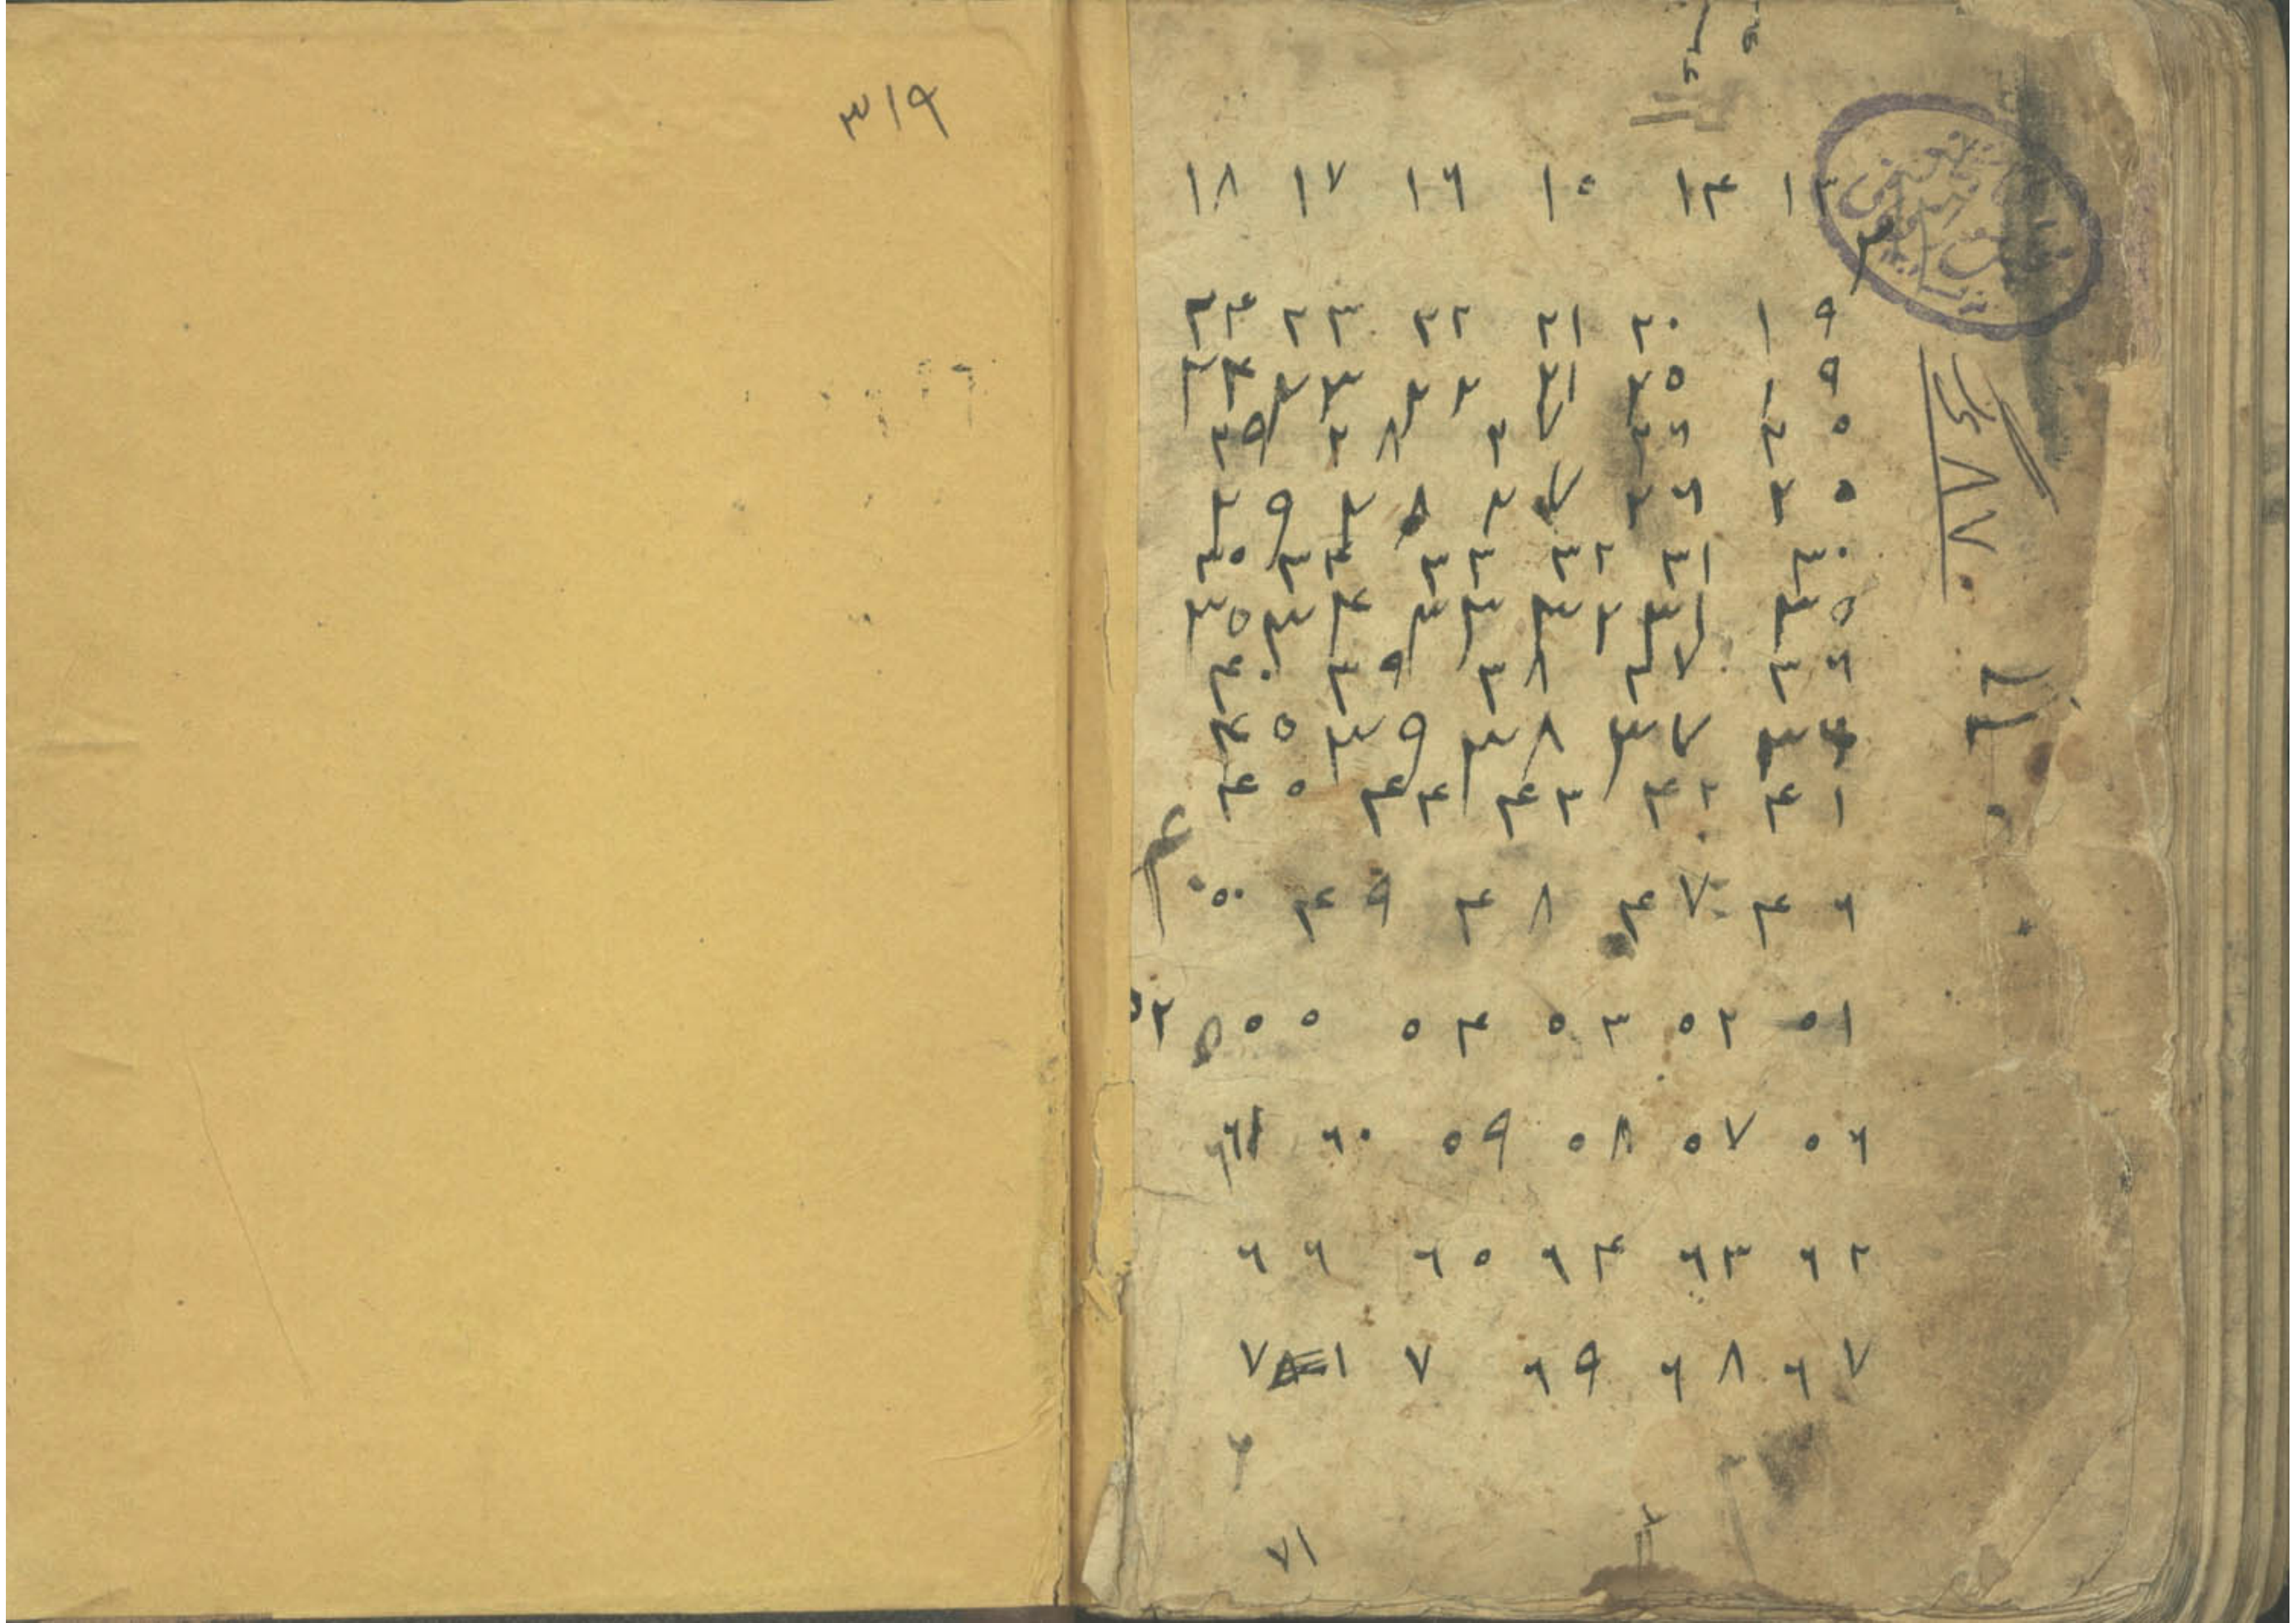 ٣١٩
١٣ ١٤ ١٥ ١٦ ١٧ ١٨
١٩ ٢٠ ٢١ ٢٢ ٢٣ ٢٤
١٩ ٢٥ ٢١ ٢٢ ٢٣ ٢٤
٢٥ ٢٦ ٢٧ ٢٨ ٢٩
٢٥ ٢٦ ٢٧ ٢٨ ٢٩
٣٠ ٣١ ٣٢ ٣٣ ٣٤ ٣٥
٣٥ ٣١ ٣٢ ٣٣ ٣٤ ٣٥
٣٦ ٣٧ ٣٨ ٣٩ ٤٠
٣٦ ٣٧ ٣٨ ٣٩ ٤٥
٤١ ٤٢ ٤٣ ٤٤ ٤٥
٤٦ ٤٧ ٤٨ ٤٩ ٥٠
٥١ ٥٢ ٥٣ ٥٤ ٥٥
٥٦ ٥٧ ٥٨ ٥٩ ٦٠ ٦١
٦٢ ٦٣ ٦٤ ٦٥ ٦٦
٦٧ ٦٨ ٦٩ ٧ ٧١
٨٧٠